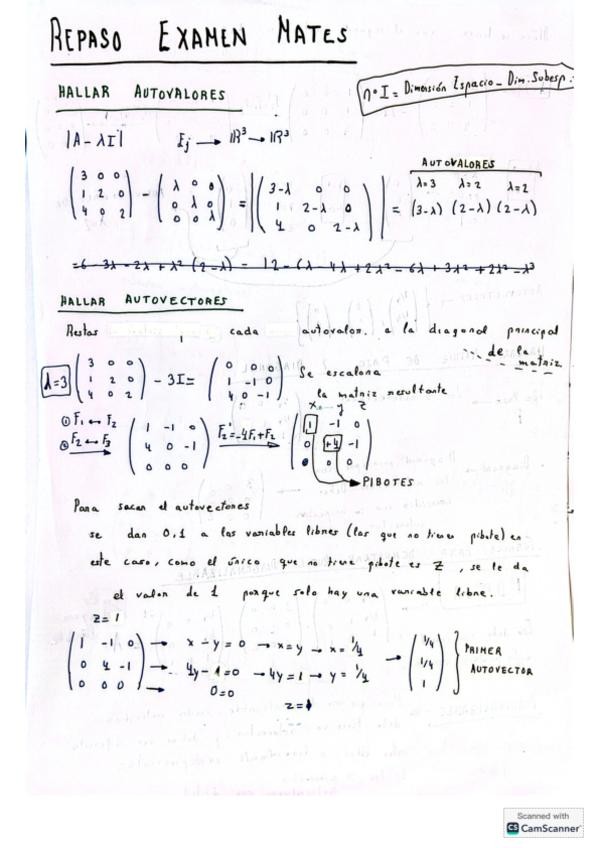 REPASO EXAMEN MATES
HALLAR AUTOVALORES
nº I = Dimensión Espacio - Dim. Subesp.
|A - λI| Ej → ℝ³ → ℝ³
AUTOVALORES
λ=3 λ=2 λ=2
(3 0 0 / 1 2 0 / 4 0 2) - (λ 0 0 / 0 λ 0 / 0 0 λ) = |(3-λ 0 0 / 1 2-λ 0 / 4 0 2-λ)| = (3-λ) (2-λ) (2-λ)
=6-3λ-2λ+λ² (2-λ) = 12-6λ-4λ+2λ²-6λ+3λ²+2λ²-λ³
HALLAR AUTOVECTORES
Restas cada autovalor a la diagonal principal
de la matriz
λ=3 (3 0 0 / 1 2 0 / 4 0 2) - 3I = (0 0 0 / 1 -1 0 / 4 0 -1) Se escalona
la matriz resultante
x y z
① F₁ ↔ F₂
② F₂ ↔ F₃
(1 -1 0 / 4 0 -1 / 0 0 0) F₂=-4F₁+F₂ → (1 -1 0 / 0 +4 -1 / 0 0 0)
PIBOTES
Para sacar el autovectores
se dan 0,1 a las variables libres (las que no tienen pibote) en
este caso, como el único que no tiene pibote es Z, se le da
el valor de 1 porque solo hay una variable libre.
z=1
(1 -1 0 / 0 4 -1 / 0 0 0) → x - y = 0 → x=y → x = 1/4
→ 4y-1=0 → 4y=1 → y = 1/4
→ 0=0
z=1
→ (1/4 / 1/4 / 1) PRIMER
AUTOVECTOR
Scanned with
CS CamScanner